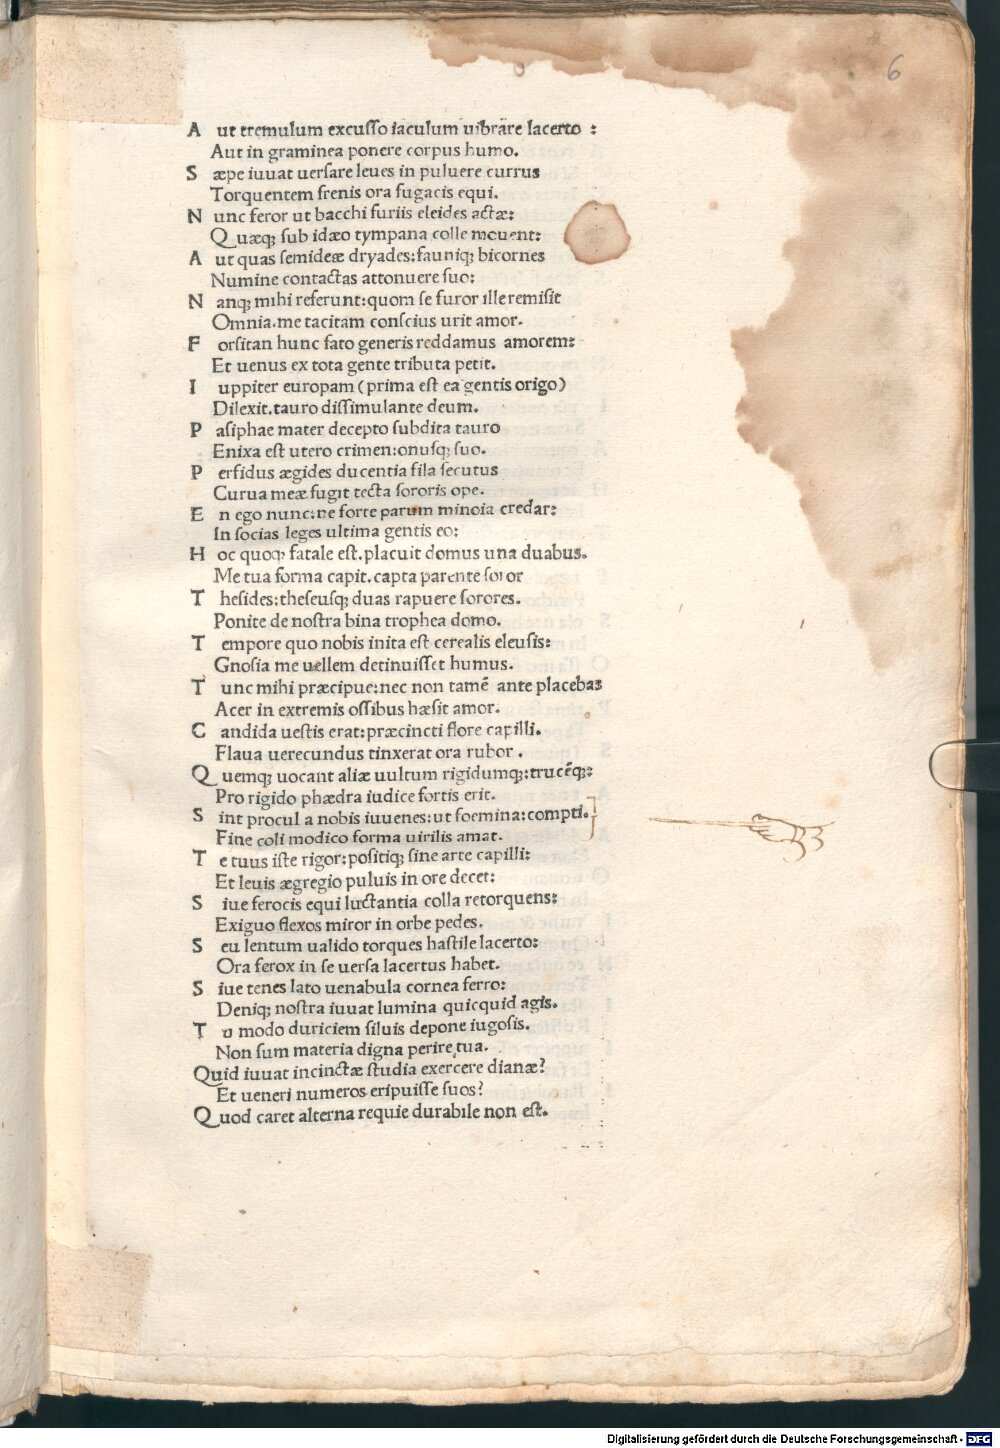 6
A ut tremulum excusso iaculum uibrare lacerto :
Aut in graminea ponere corpus humo.
S æpe iuuat uersare leues in puluere currus
Torquentem frenis ora fugacis equi.
N unc feror ut bacchi furiis eleides actæ:
Quæq; sub idæo tympana colle mouent:
A ut quas semideæ dryades: fauniq; bicornes
Numine contactas attonuere suo:
N anq; mihi referunt: quom se furor ille remisit
Omnia. me tacitam conscius urit amor.
F orsitan hunc fato generis reddamus amorem:
Et uenus ex tota gente tributa petit.
I uppiter europam (prima est ea gentis origo)
Dilexit. tauro dissimulante deum.
P asiphae mater decepto subdita tauro
Enixa est utero crimen: onusq; suo.
P erfidus ægides ducentia fila secutus
Curua meæ fugit tecta sororis ope.
E n ego nunc: ne forte parum minoia credar:
In socias leges ultima gentis eo:
H oc quoq; fatale est. placuit domus una duabus.
Me tua forma capit. capta parente soror
T hesides: theseusq; duas rapuere sorores.
Ponite de nostra bina trophea domo.
T empore quo nobis inita est cerealis eleusis:
Gnosia me uellem detinuisset humus.
T unc mihi præcipue: nec non tamē ante placebas
Acer in extremis ossibus hæsit amor.
C andida uestis erat: præcincti flore capilli.
Flaua uerecundus tinxerat ora rubor .
Q uemq; uocant aliæ uultum rigidumq; : trucēq; :
Pro rigido phædra iudice fortis erit.
S int procul a nobis iuuenes: ut foemina: compti.
Fine coli modico forma uirilis amat.
T e tuus iste rigor: positiq; sine arte capilli:
Et leuis ægregio puluis in ore decet:
S iue ferocis equi luctantia colla retorquens:
Exiguo flexos miror in orbe pedes.
S eu lentum ualido torques hastile lacerto:
Ora ferox in se uersa lacertus habet.
S iue tenes lato uenabula cornea ferro:
Deniq; nostra iuuat lumina quicquid agis.
T u modo duriciem siluis depone iugosis.
Non sum materia digna perire tua.
Quid iuuat incinctæ studia exercere dianæ?
Et ueneri numeros eripuisse suos?
Q uod caret alterna requie durabile non est.
Digitalisierung gefördert durch die Deutsche Forschungsgemeinschaft - DFG